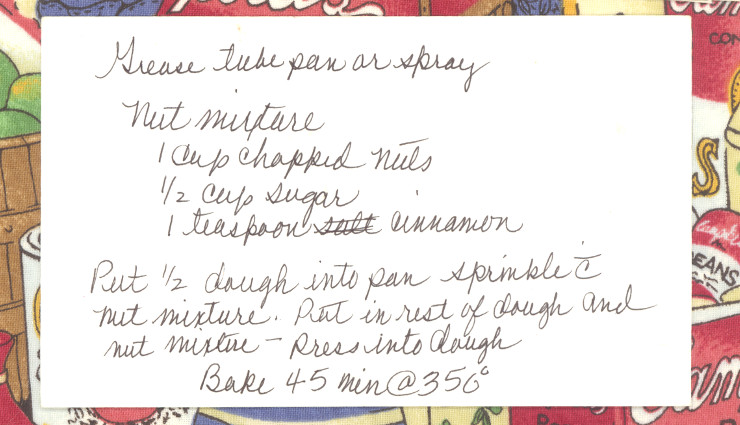 Grease tube pan or spray
Nut mixture
1 cup chopped nuts
1/2 cup sugar
1 teaspoon salt cinnamon
Put 1/2 dough into pan sprinkle c̄
nut mixture. Put in rest of dough and
nut mixture - Press into dough
Bake 45 min @ 350°
CON
S
Campbell's
BEANS